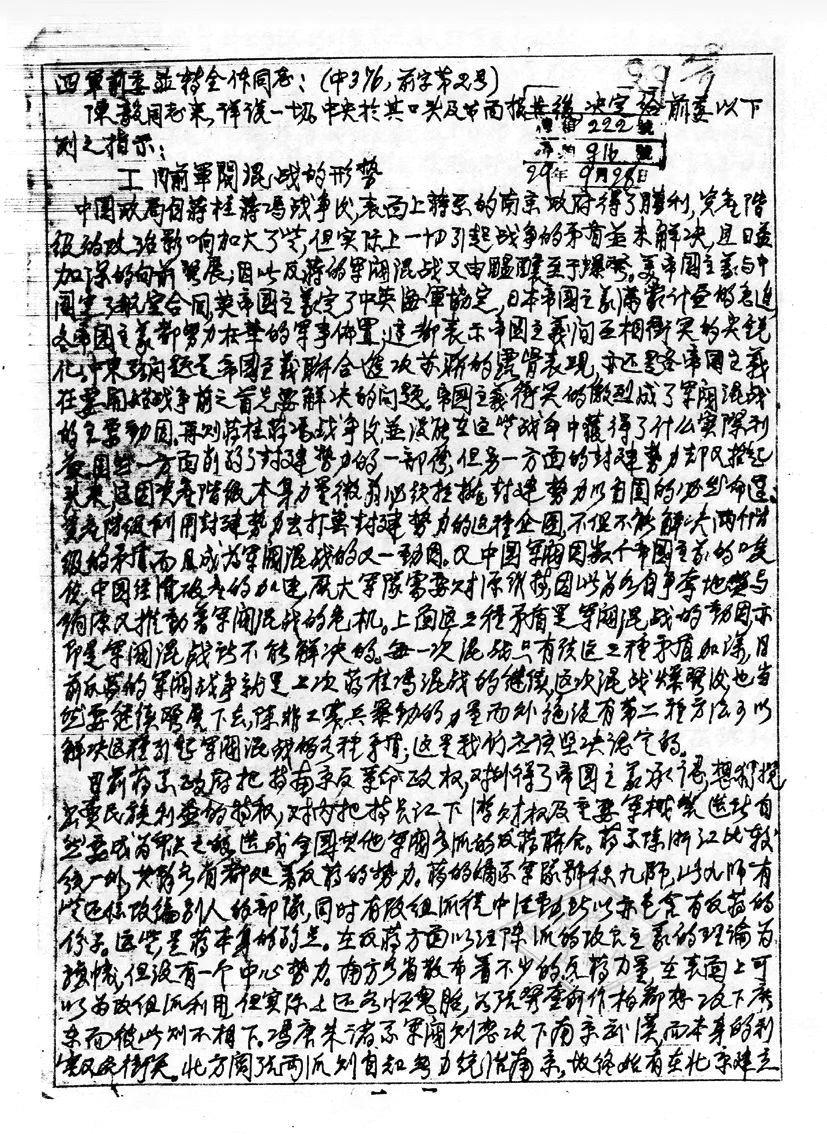 四軍前委並轉全体同志：（中376，前字第2号）
陳毅同志来，詳説一切，中央於其口头及书面报告後，决定给前委以下
222 號
916 號
29年9月28日
列之指示：
工 目前軍閥混战的形势
中國政局自蒋桂蒋馮战争后，表面上蒋系的南京政府得了勝利，資产階
级的改良影响加大了些，但实际上一切引起战争的矛盾並未解决，且日益
加深的向前發展；因此反蒋的軍閥混战又由醞釀至于爆發。美帝國主義与中
國定了航空合同，英帝國主義定了中英海軍協定，日本帝國主義滿蒙计画的急進，
各帝國主義都努力在華的軍事佈置；這都表示帝國主義间互相衝突的尖銳
化，中東路问题是帝國主義聯合進攻苏聯的露骨表现，亦还是各帝國主義
在要開始战争前之首先要解决的问题。帝國主義衝突的激烈成了軍閥混战
的主要動因。再则蒋桂蒋馮战争後並没能在这些战争中獲得了什么实际利
益，因为一方面削弱了封建势力的一部份，但另一方面的封建势力却又抬起
头来，这因資产階级本身力量微弱必须拉攏封建势力以自固的必然
資产階级利用封建势力去打擊封建势力的这种企图，不但不能解决两个階
级的矛盾，而且成为軍閥混战的又一動因。又中國軍閥因数个帝國主義的唆
使，中國经济破产的加速，龐大軍隊需要财源给养，因此为各自争夺地盤与
餉源又推動着軍閥混战的危机。上面这三種矛盾是軍閥混战的動因，亦
即是軍閥混战所不能解决的。每一次混战只有使这三種矛盾加深，目
前反蒋的軍閥战争就是上次蒋桂馮混战的继续，这次混战爆發後，也当
然要继续發展下去，除非工農兵暴動的力量而外绝没有第二種方法可以
解决这種引起軍閥混战的各種矛盾；这是我们应该坚决認定的。
目前蒋系政府把持南京反革命政权，对外得了帝國主義承認，想獨攬
出賣民族利益的特权，对内把持长江下游财权及重要軍械製造所，自
然要成为眾矢之的，造成全國其他軍閥各派的反蒋聯合。蒋系除浙江比较
统一外，其餘各省都处着反蒋的势力。蒋的嫡系軍隊號称九師，此九師有
些还係改编别人的部隊，同时有改组派从中活動，所以亦包含有反蒋的
份子。这些是蒋本身的弱点。在反蒋方面以汪陳派的改良主義的理論为
旗幟，但没有一个中心势力。南方各省散布着不少的反蒋力量，在表面上可
以为改组派利用，但实际上还各怀鬼胎，如张發奎俞作柏都想攻下廣
东而彼此则不相下。馮唐朱诸系軍閥则想攻下南京武漢，而本身的利
害又多衝突。北方閻张两派则自知無力统治南京，故终始有在北京建立